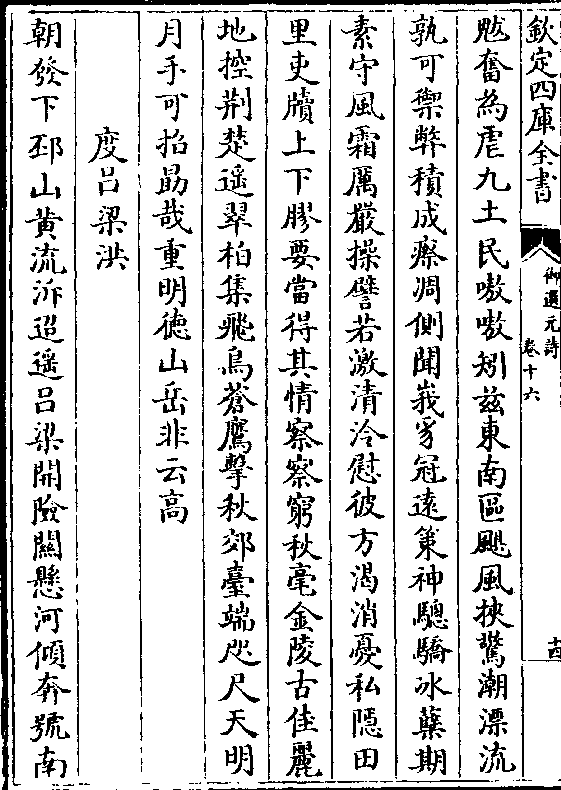 欽定四庫全書
御選元詩
卷十六
十四
尠奮為虐九土民嗷嗷矧兹東南區颶風挾驚潮漂流
孰可禦弊積成瘵凋側聞峩豸冠遠策神驄驕冰蘖期
素守風霜厲嚴操譬若激清泠慰彼方渴消憂私隱田
里吏牘上下膠要當得其情察察窮秋毫金陵古佳麗
地控荆楚遥翠柏集飛烏蒼鷹擊秋郊臺端咫尺天明
月手可招勗哉重明徳山岳非云高
度吕梁洪
朝發下邳山黄流泝迢遥吕梁開險關懸河傾奔號南